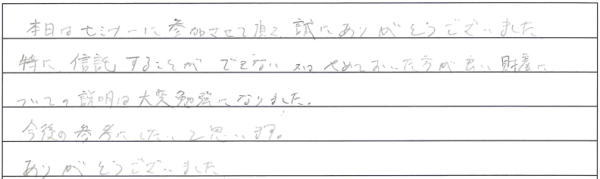 本日はセミナーに参加させて頂て、誠にありがとうございました
特に、信託することができない 又は やめておいた方が良い財産に
ついての説明は大変勉強になりました。
今後の参考にしたいと思います!
ありがとうございました